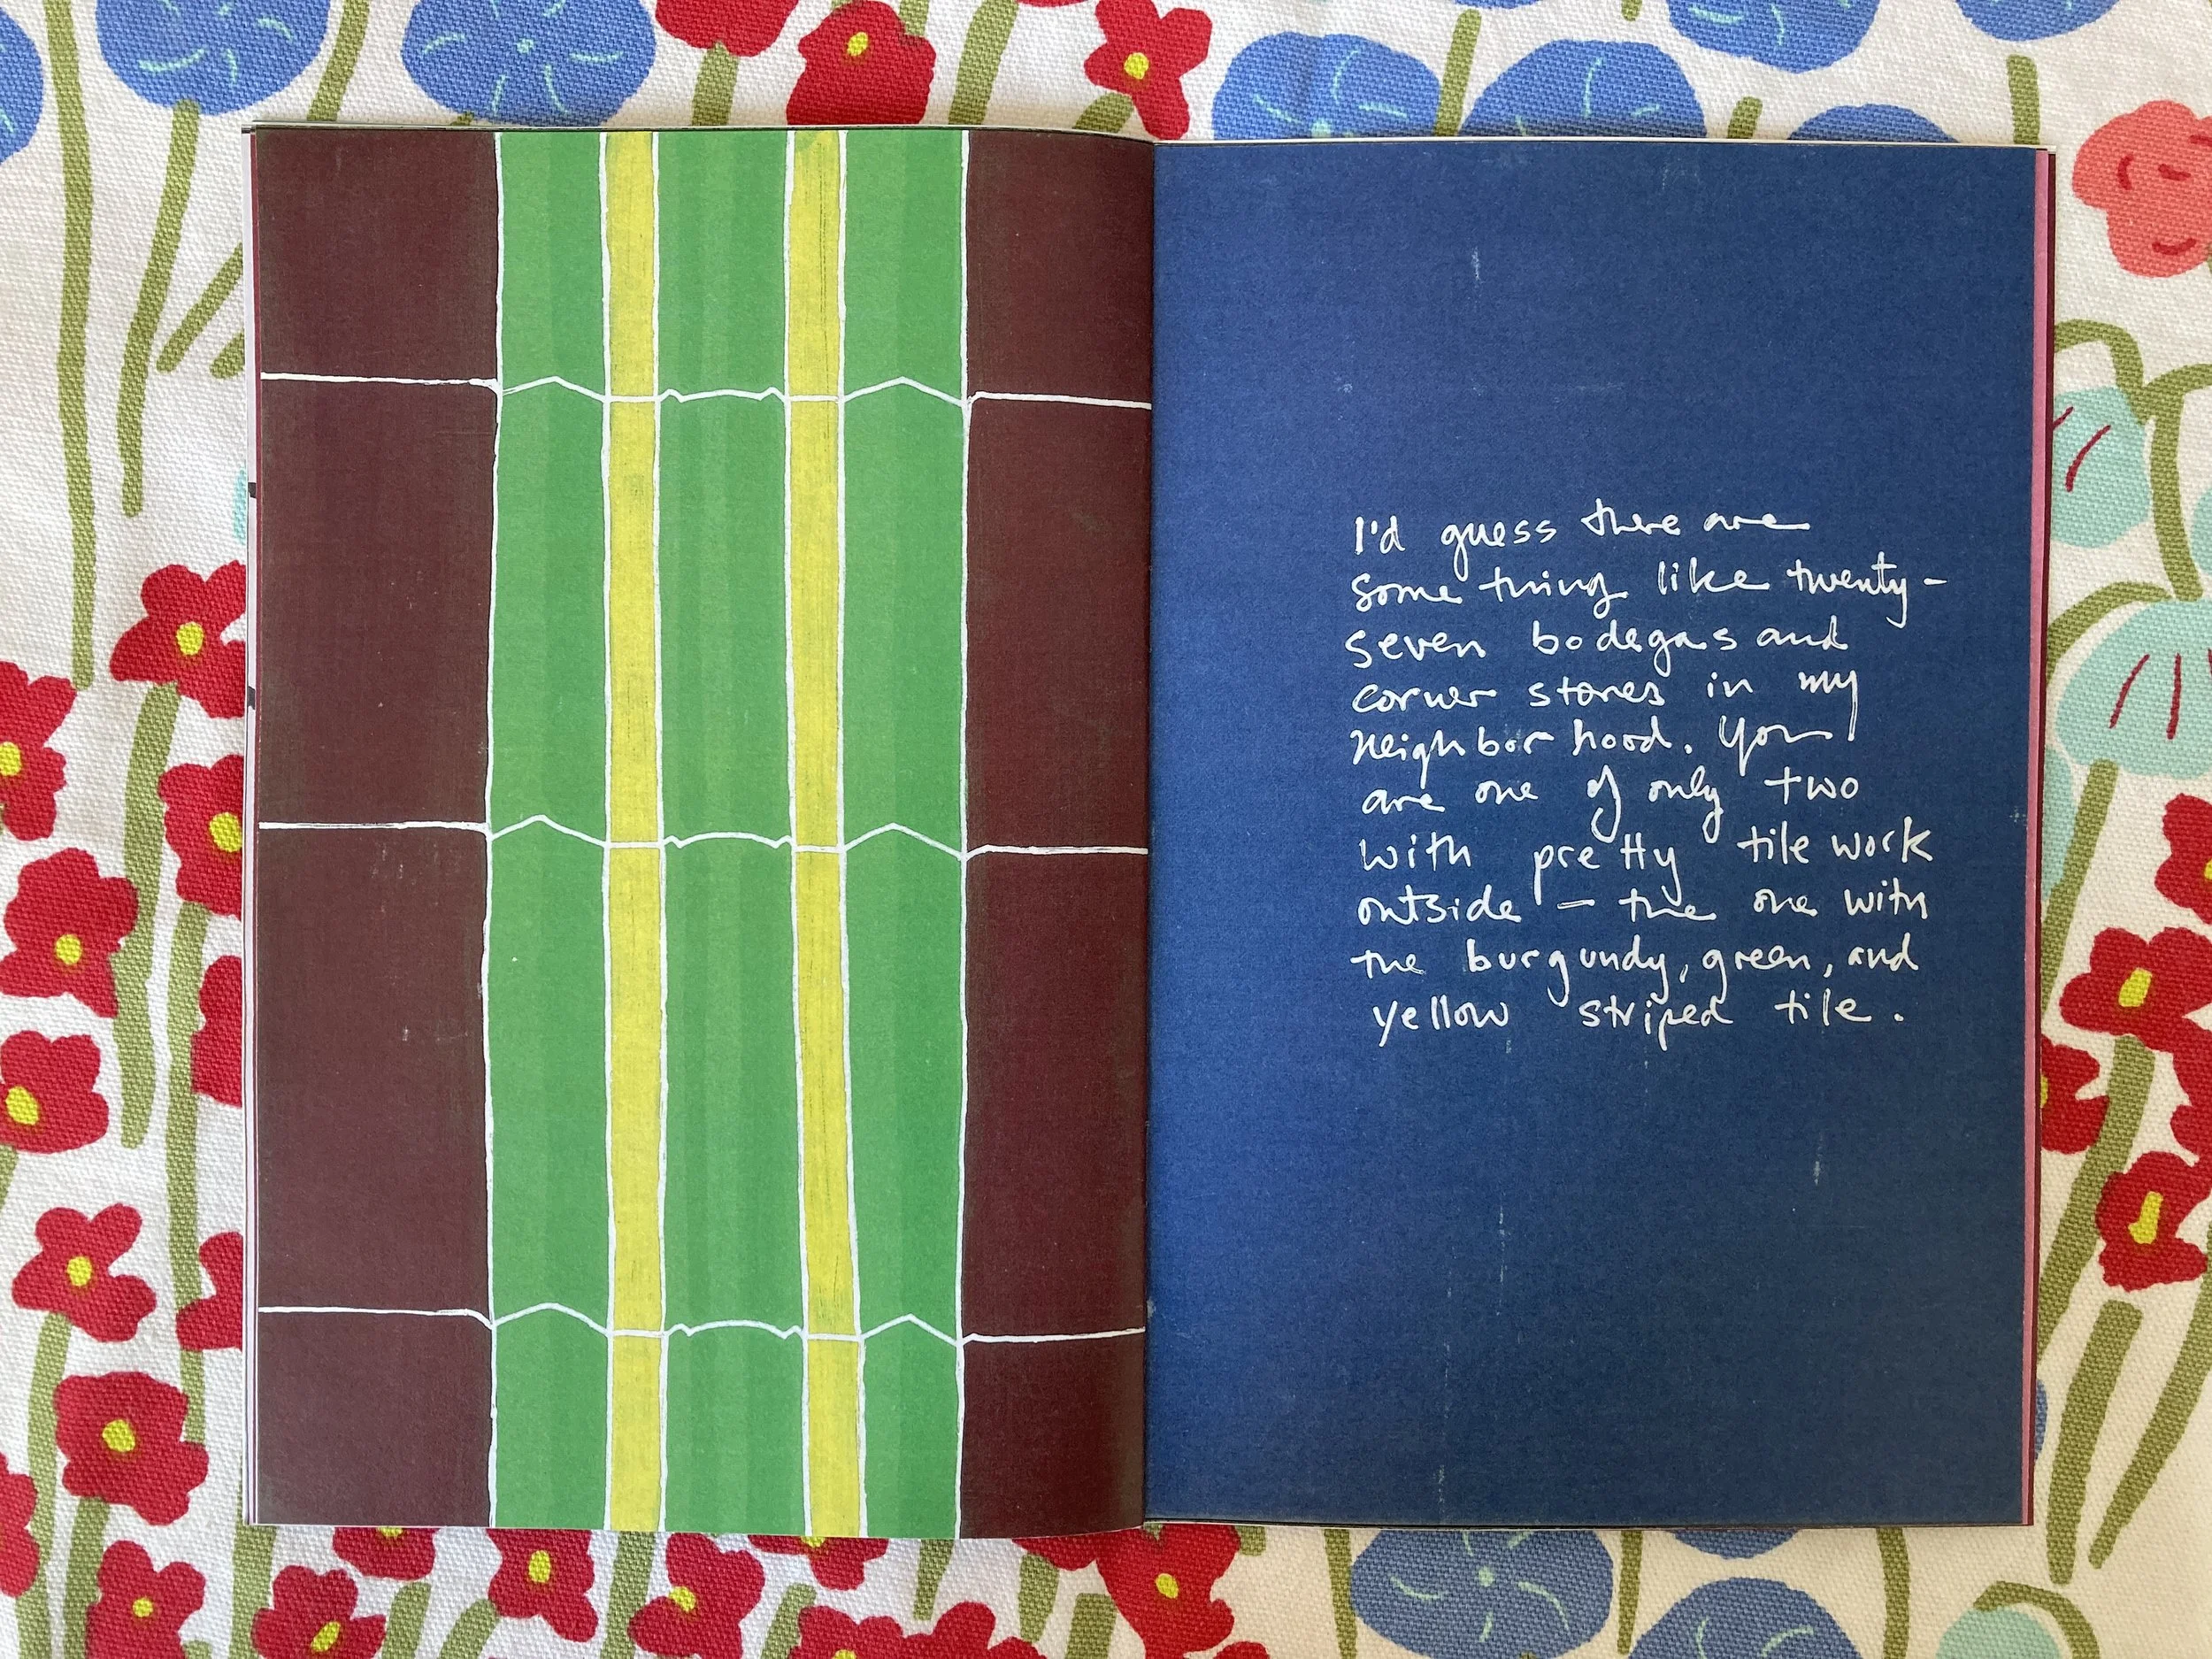 I'd guess there are
something like twenty-
seven bodegas and
corner stores in my
neighborhood. You
are one of only two
with pretty tile work
outside — the one with
the burgundy, green, and
yellow striped tile.